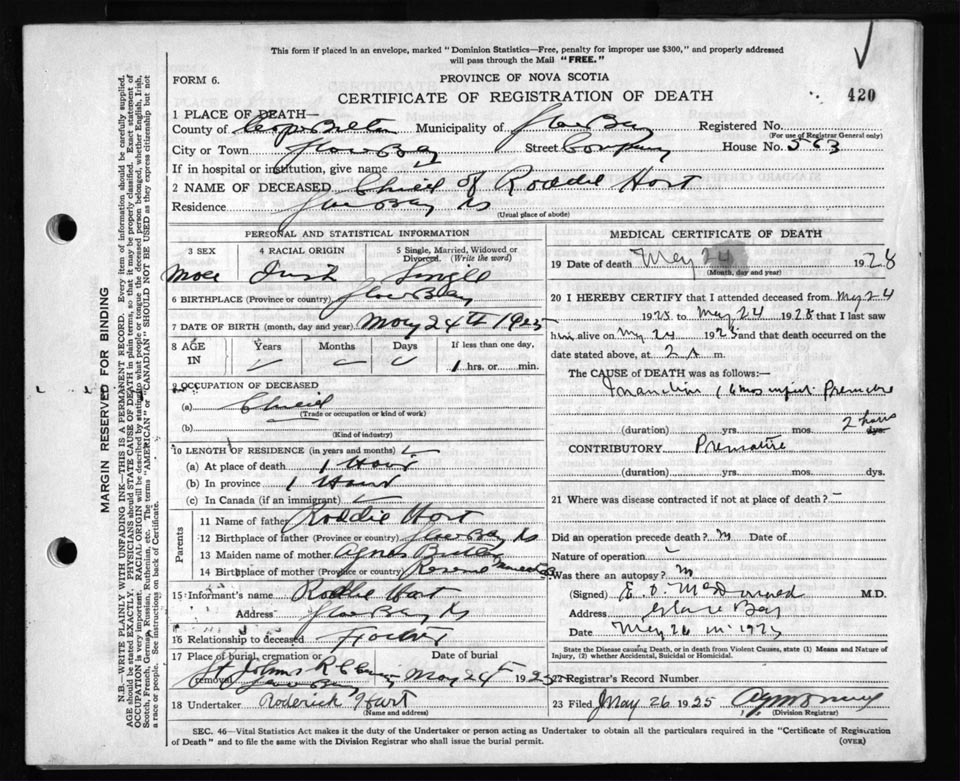 This form if placed in an envelope, marked "Dominion Statistics—Free, penalty for improper use $300," and properly addressed
will pass through the Mail "FREE."
FORM 6.
PROVINCE OF NOVA SCOTIA
CERTIFICATE OF REGISTRATION OF DEATH
420
1 PLACE OF DEATH—
County of Cape Breton Municipality of Glace Bay Registered No.
(For use of Registrar General only)
City or Town Glace Bay Street Company House No. 563
If in hospital or institution, give name
2 NAME OF DECEASED Chield of Roddie Hart
Residence Glace Bay NS
(Usual place of abode)
PERSONAL AND STATISTICAL INFORMATION
3 SEX 4 RACIAL ORIGIN 5 Single, Married, Widowed or Divorced. (Write the word)
Male Single
6 BIRTHPLACE (Province or country) Glace Bay
7 DATE OF BIRTH (month, day and year) May 24th 1925
8 AGE IN Years Months Days If less than one day,
1 hrs. or min.
9 OCCUPATION OF DECEASED
(a) Chield
(Trade or occupation or kind of work)
(b)
(Kind of industry)
10 LENGTH OF RESIDENCE (in years and months)
(a) At place of death 1 Hour
(b) In province 1 Hour
(c) In Canada (if an immigrant)
Parents
11 Name of father Roddie Hart
12 Birthplace of father (Province or country) Glace Bay NS
13 Maiden name of mother Agnes
14 Birthplace of mother (Province or country)
15 Informant's name Roddie Hart
Address Glace Bay NS
16 Relationship to deceased Father
17 Place of burial, cremation or removal Date of burial
St Johns May 24 1925
18 Undertaker Roderick Hart
(Name and address)
MEDICAL CERTIFICATE OF DEATH
19 Date of death May 24 1928
(Month, day and year)
20 I HEREBY CERTIFY that I attended deceased from May 24
1925 to May 24 1928 that I last saw
him alive on May 24 1925 and that death occurred on the
date stated above, at 2 A m.
The CAUSE of DEATH was as follows:—
Inanition
(duration) yrs. mos. 2 hours dys.
CONTRIBUTORY Premature
(duration) yrs. mos. dys.
21 Where was disease contracted if not at place of death? —
Did an operation precede death? no Date of
Nature of operation
Was there an autopsy? no
(Signed) M.D.
Address Glace Bay
Date May 26
State the Disease causing Death, or in death from Violent Causes, state (1) Means and Nature of
Injury, (2) whether Accidental, Suicidal or Homicidal.
22 Registrar's Record Number
23 Filed May 26 1925
(Division Registrar)
SEC. 46—Vital Statistics Act makes it the duty of the Undertaker or person acting as Undertaker to obtain all the particulars required in the "Certificate of Registration
of Death" and to file the same with the Division Registrar who shall issue the burial permit.
(OVER)
MARGIN RESERVED FOR BINDING
N.B.—WRITE PLAINLY WITH UNFADING INK—THIS IS A PERMANENT RECORD. Every item of information should be carefully supplied.
AGE should be stated EXACTLY. PHYSICIANS should STATE CAUSE OF DEATH in plain terms, so that it may be properly classified. Exact statement of
OCCUPATION is very important. RACIAL ORIGIN will be described by stating to what people or tongue the deceased person belonged, whether English, Irish,
Scotch, French, German, Russian, Ruthenian, etc. The terms "AMERICAN" or "CANADIAN" SHOULD NOT BE USED as they express citizenship but not
a race or people. See instructions on back of Certificate.